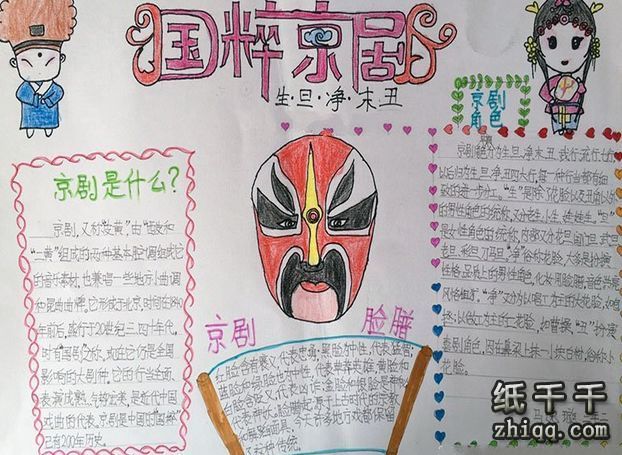 国粹京剧
生·旦·净·末·丑
京剧
角色
京剧是什么?
京剧,又称"皮黄",由"西皮"和
"二黄"组成的两种基本腔调组成它
的音乐素材,也兼唱一些地方小曲调
和昆曲曲牌。它形成于北京,时间在1840
年前后,盛行于20世纪三、四十年代,
时有"国剧"之称。现在它仍是全国
影响的大剧种。它的行当全面、
表演成熟、气势宏美,是近代中国
戏曲的代表。京剧是中国的"国粹"
已有200年历史。
京剧 脸谱
红脸含有褒义,代表忠勇;黑脸为中性,代表猛智;
蓝脸和绿脸也为中性,代表草莽英雄;黄脸和
白脸含贬义,代表凶诈;金脸和银脸是神秘,
代表神妖。脸谱起源于上古时代的宗教
和舞蹈面具,今天许多地方戏都保留
了这种传统。
以后归为生、旦、净、丑四大行,每一种行当都有细
致的进一步分工。"生"是除了花脸以及丑角以外
的男性角色的统称,又分老生、小生、武生、娃娃生。"旦"
是女性角色的统称,内部又分
"净"俗称花脸,大多是扮演
性格、品质上的男性角色,化妆用脸谱,音色
风格粗犷。"净"又分为以唱工为主的大花脸,
以做工为主的二花脸,如曹操。"丑"扮演
喜剧角色,因在鼻梁上抹一小块白粉,俗称小
花脸。
纸千千
zhiqq.com